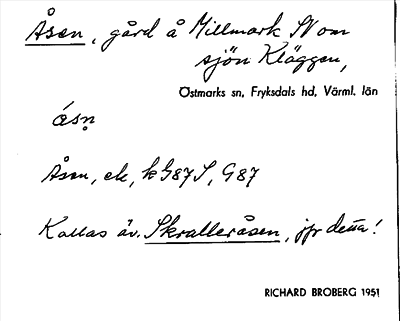 Åsen, gård å Millmark SV om
sjön Kläggen,
Östmarks sn, Fryksdals hd, Värml. län
åsṇ
Åsen, ek, k G87 S, G87
Kallas äv. Skralleråsen, jfr detta!
RICHARD BROBERG 1951